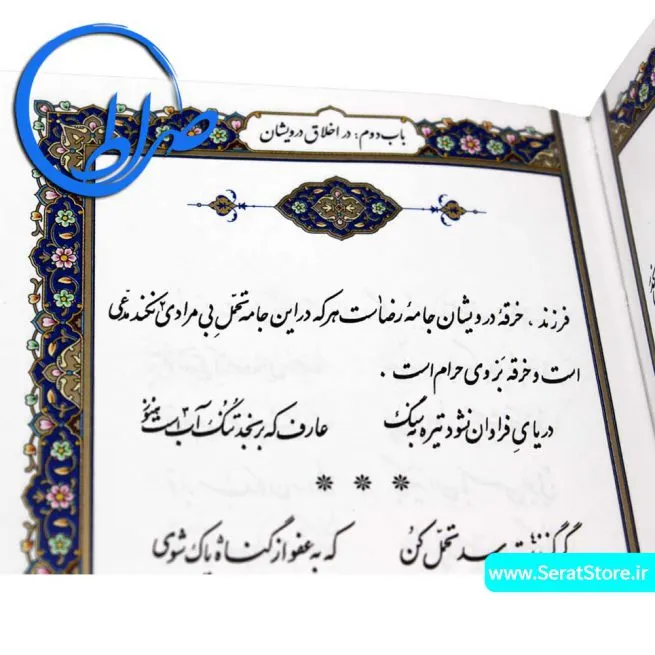 صراط
باب دوم: در اخلاق درویشان
فرزند، خرقهٔ درویشان جامهٔ رضاست هرکه در این جامه تحمّل بی مرادی۲ نکند مدّعی
است و خرقه بَر وی حرام است.
دریایِ فراوان نشود تیره به سنگ عارف که برنجد تُنُک آب۳ است هنوز
* * *
گر گزندت رسد تحمّل کن که به عفو از گناه پاک شوی
www.SeratStore.ir